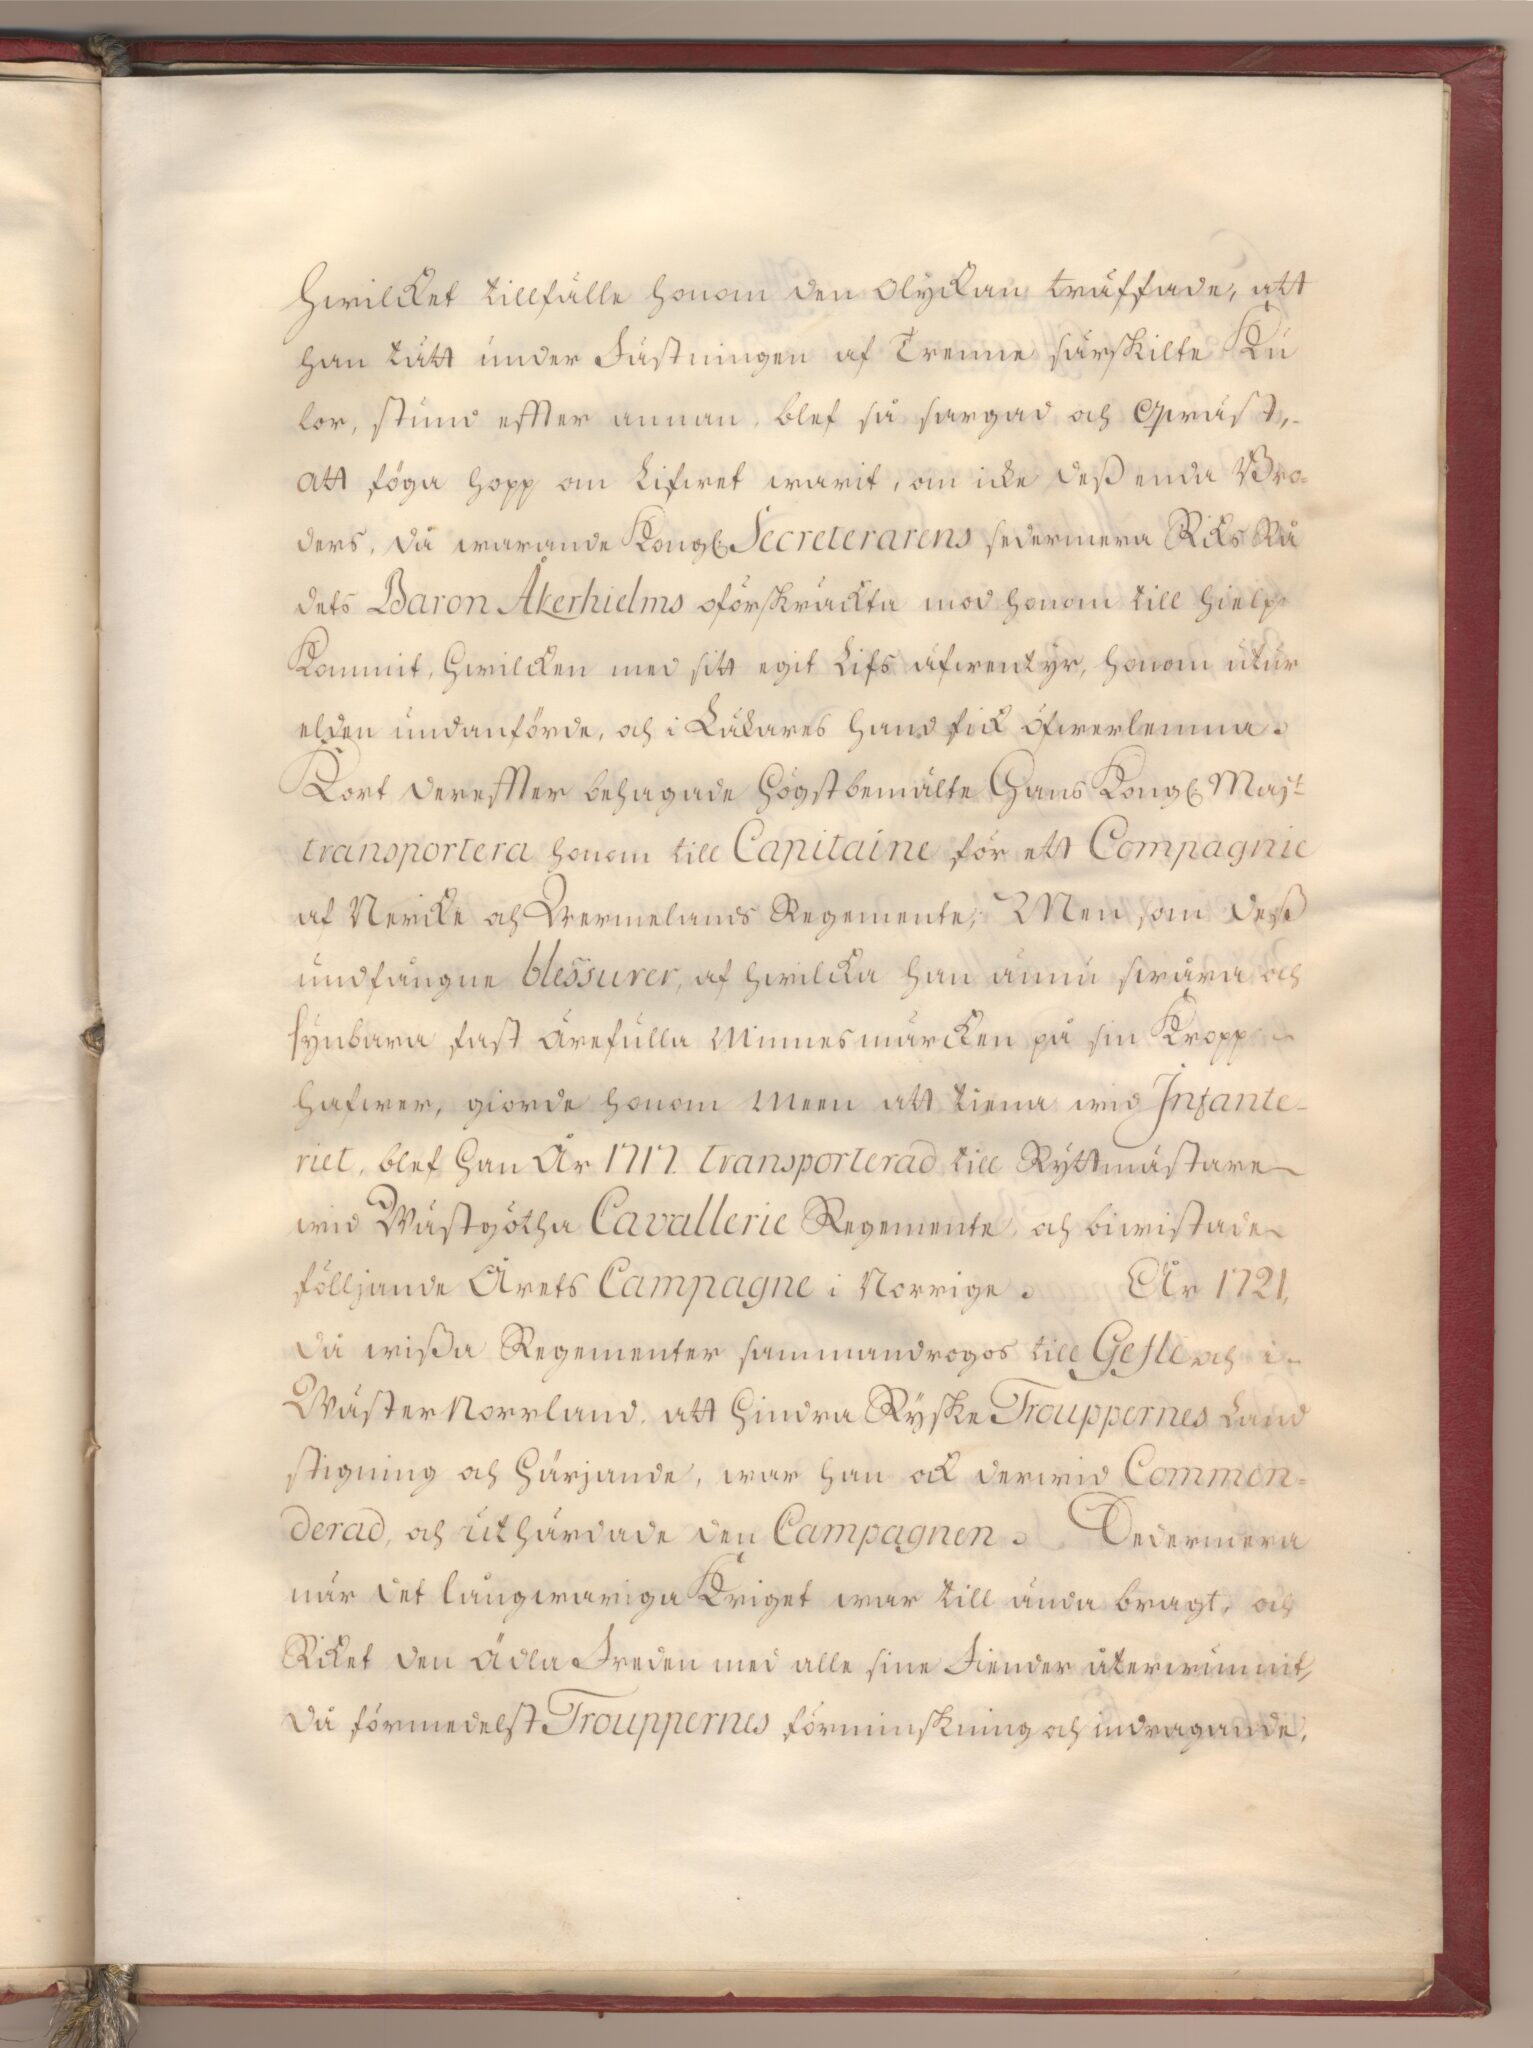 Hwilcket tillfälle honom den olyckan träffade, att
han tätt under Fästningen af Trenne särskilte Ku
lor, stund effter annan, blef så sargad och qwäst,
att föga hopp om Lifwet warit, om icke dess enda Bro-
ders, då warande Kongl. Secreterarens sedermera Riks Rå
dets Baron Åkerhielms oförskräckta mod honom till hielp
Kommit, hwilcken med sitt egit Lifs äfwentyr, honom utur
elden undanförde, och i Läkares hand fick öfwerlemna.
Kort dereffter behagade Högstbemälte Hans Kongl. Maj:t
transportera honom till Capitaine för ett Compagnie
af Nericke och Wermelands Regemente; Men som dess
undfångne blessurer, af hwilcka han ännu swåra och
synbara fast ärefulla Minnesmärcken på sin Kropp
hafwer, giorde honom Meen att tiena wid Infante-
riet, blef Han År 1717. transporterad till Ryttmästare
wid Wästgötha Cavallerie Regemente, och biwistade
följande Årets Campagne i Norrige. År 1721,
då wissa Regementer sammandrogos till Gefle och i
Wäster Norrland, att Hindra Ryske Trouppernes Land
stigning och Härjande, war han ock derwid Commen-
derad, och uthärdade den Campagnen. Sedermera
när det långwariga Kriget war till ända bragt, och
Riket den Ädla Freden med alle sine Fiender återwunnit,
då förmedelst Trouppernes förminskning och indragande,